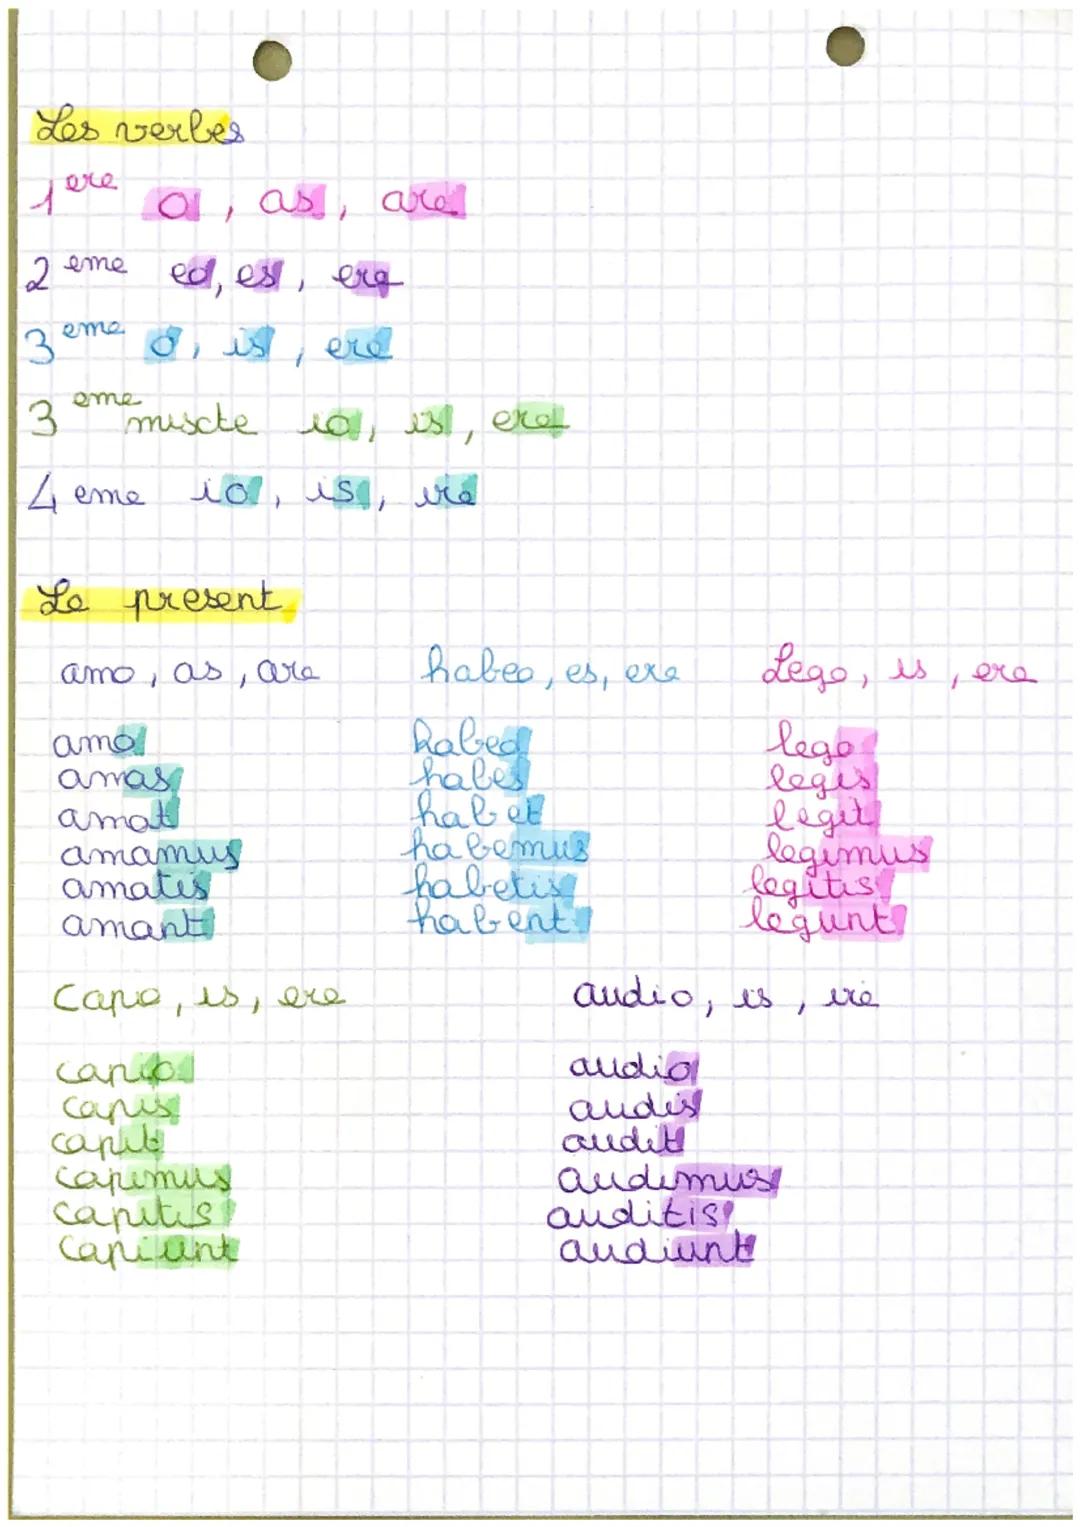 Les verbes
1ere o, as, are
2 eme eo, es, ere
3 eme o, is, ere
3 eme miscte io, is, ere
4 eme io, is, ire
Le present
amo, as, are habeo, es, ere Lego, is, ere
amo habeo lego
amas habes legis
amat habet legit
amamus habemus legimus
amatis habetis legitis
amant habent legunt
Capio, is, ere audio, is, ire
capio audio
capis audis
capit audit
capimus audimus
capitis auditis
capiunt audiunt